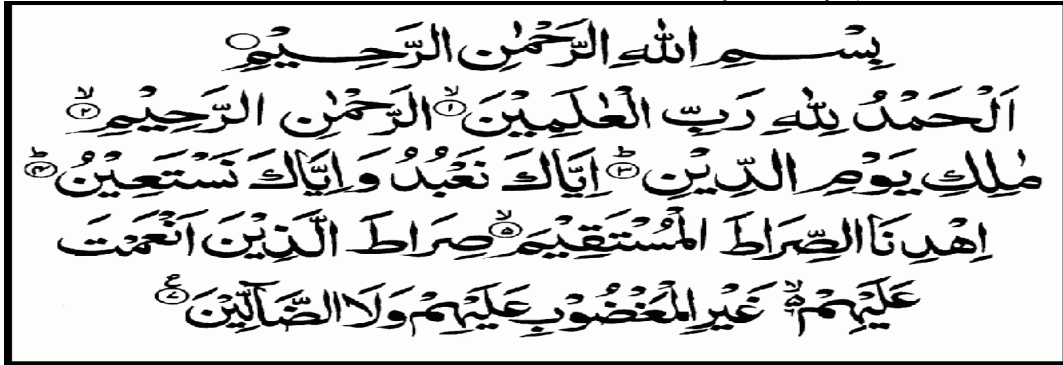 بِسْــمِ اللهِ الرَّحْمٰنِ الرَّحِــيْمِ ○
اَلْحَمْدُ لِلّٰهِ رَبِّ الْعٰلَمِيْنَ ۙ﴿۱﴾ الرَّحْمٰنِ الرَّحِيْمِ ۙ﴿۲﴾
مٰلِكِ يَوْمِ الدِّيْنِ ؕ﴿۳﴾ اِيَّاكَ نَعْبُدُ وَ اِيَّاكَ نَسْتَعِيْنُ ؕ﴿۴﴾
اِهْدِ نَا الصِّرَاطَ الْمُسْتَقِيْمَ ۙ﴿۵﴾ صِرَاطَ الَّذِيْنَ اَنْعَمْتَ
عَلَيْهِمْ ۙ۬ غَيْرِ الْمَغْضُوْبِ عَلَيْهِمْ وَلَا الضَّآلِّيْنَ ﴿۷﴾ ع